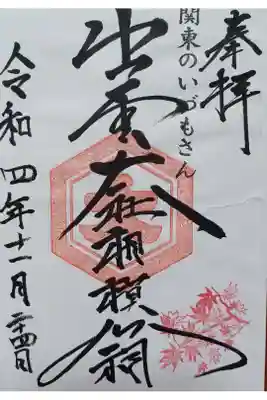 奉拝
関東のいづもさん
出雲大社相模分祠
令和四年十一月二十四日